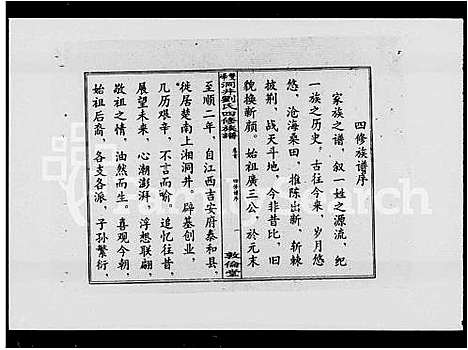 四修族谱序
家族之谱，叙一姓之源流，纪
一族之历史，古往今来，岁月悠
悠，沧海桑田，推陈出新，斩棘
披荆，战天斗地，今非昔比，旧
貌换新颜，始祖廣三公，於元末
洞井劉氏四修族譜
四修谱序
敦倫堂
至顺二年，自江西吉安府泰和县，
徙居楚南上湘洞井。辟基创业，
几历艰辛，不言而喻。追忆往昔，
展望未来，心潮澎湃，浮想联翩，
敬祖之情，油然而生。喜观今朝，
始祖后裔，各支各派，子孙繁衍，